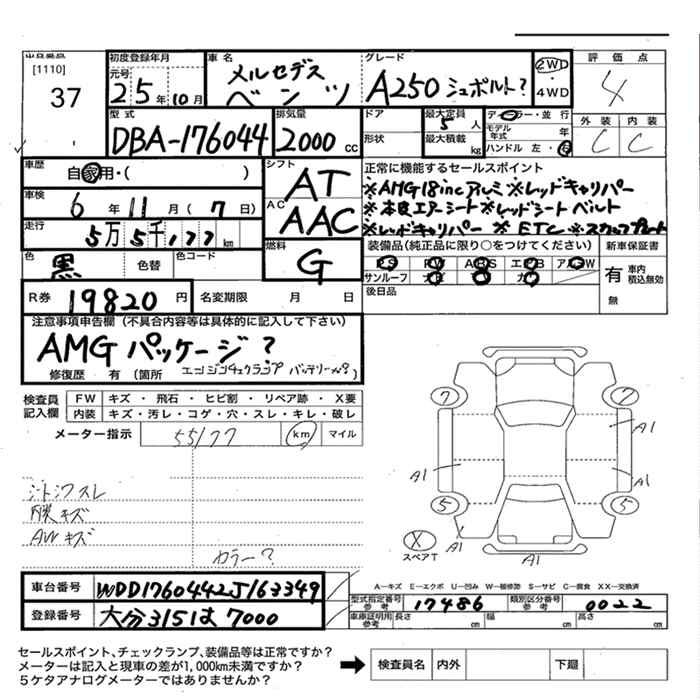 [1110]
37
初度登録年月
元号
25年10月
車名
メルセデス
ベンツ
グレード
A250 シュポルト?
2WD
・
4WD
評価点
4
外装 内装
C C
型式
DBA-176044
排気量
2000 cc
ドア
形状
最大定員
5 人
最大積載
kg
ディーラー・並行
モデル年式 年
ハンドル 左・右
車歴
自家用・( )
車検
6年11月(7日)
走行
5万5千177km
色
黒
色替
色コード
シフト
AT
AC
AAC
燃料
G
正常に機能するセールスポイント
※AMG18incアルミ※レッドキャリパー
※本皮エアーシート※レッドシートベルト
※レッドキャリパー ※ETC※スカッフプレート
装備品(純正品に限り○をつけてください)
PS PW ABS エアB アルW
サンルーフ ナビ カワ
後日品
新車保証書
有
無
車内
積込無効
R券 19820円
名変期限 月 日
注意事項申告欄(不具合内容等は具体的に記入して下さい)
AMGパッケージ?
修復歴 有(箇所 エンジンチェクランプ バッテリーカバ)
検査員
記入欄
FW キズ ・ 飛石 ・ ヒビ割 ・ リペア跡 ・ X要
内装 キズ・汚レ・コゲ・穴・スレ・キレ・破レ
メーター指示 55177 km マイル
シートシワスレ
内装キズ
AWキズ
カラー?
7 7
A1
A1 A1
5 5
A1
A1
X
スペアT
車台番号 WDD1760442J163349
登録番号 大分315は7000
A―キズ E―エクボ U―凹み W―補修跡 S―サビ C―腐食 XX―交換済
型式指定番号
参考
17486
類別区分番号
参考
0022
車庫証明用
参考
長さ cm 幅 cm 高さ cm
セールスポイント、チェックランプ、装備品等は正常ですか?
メーターは記入と現車の差が1,000km未満ですか?
5ケタアナログメーターではありませんか?
検査員名 内外 下廻